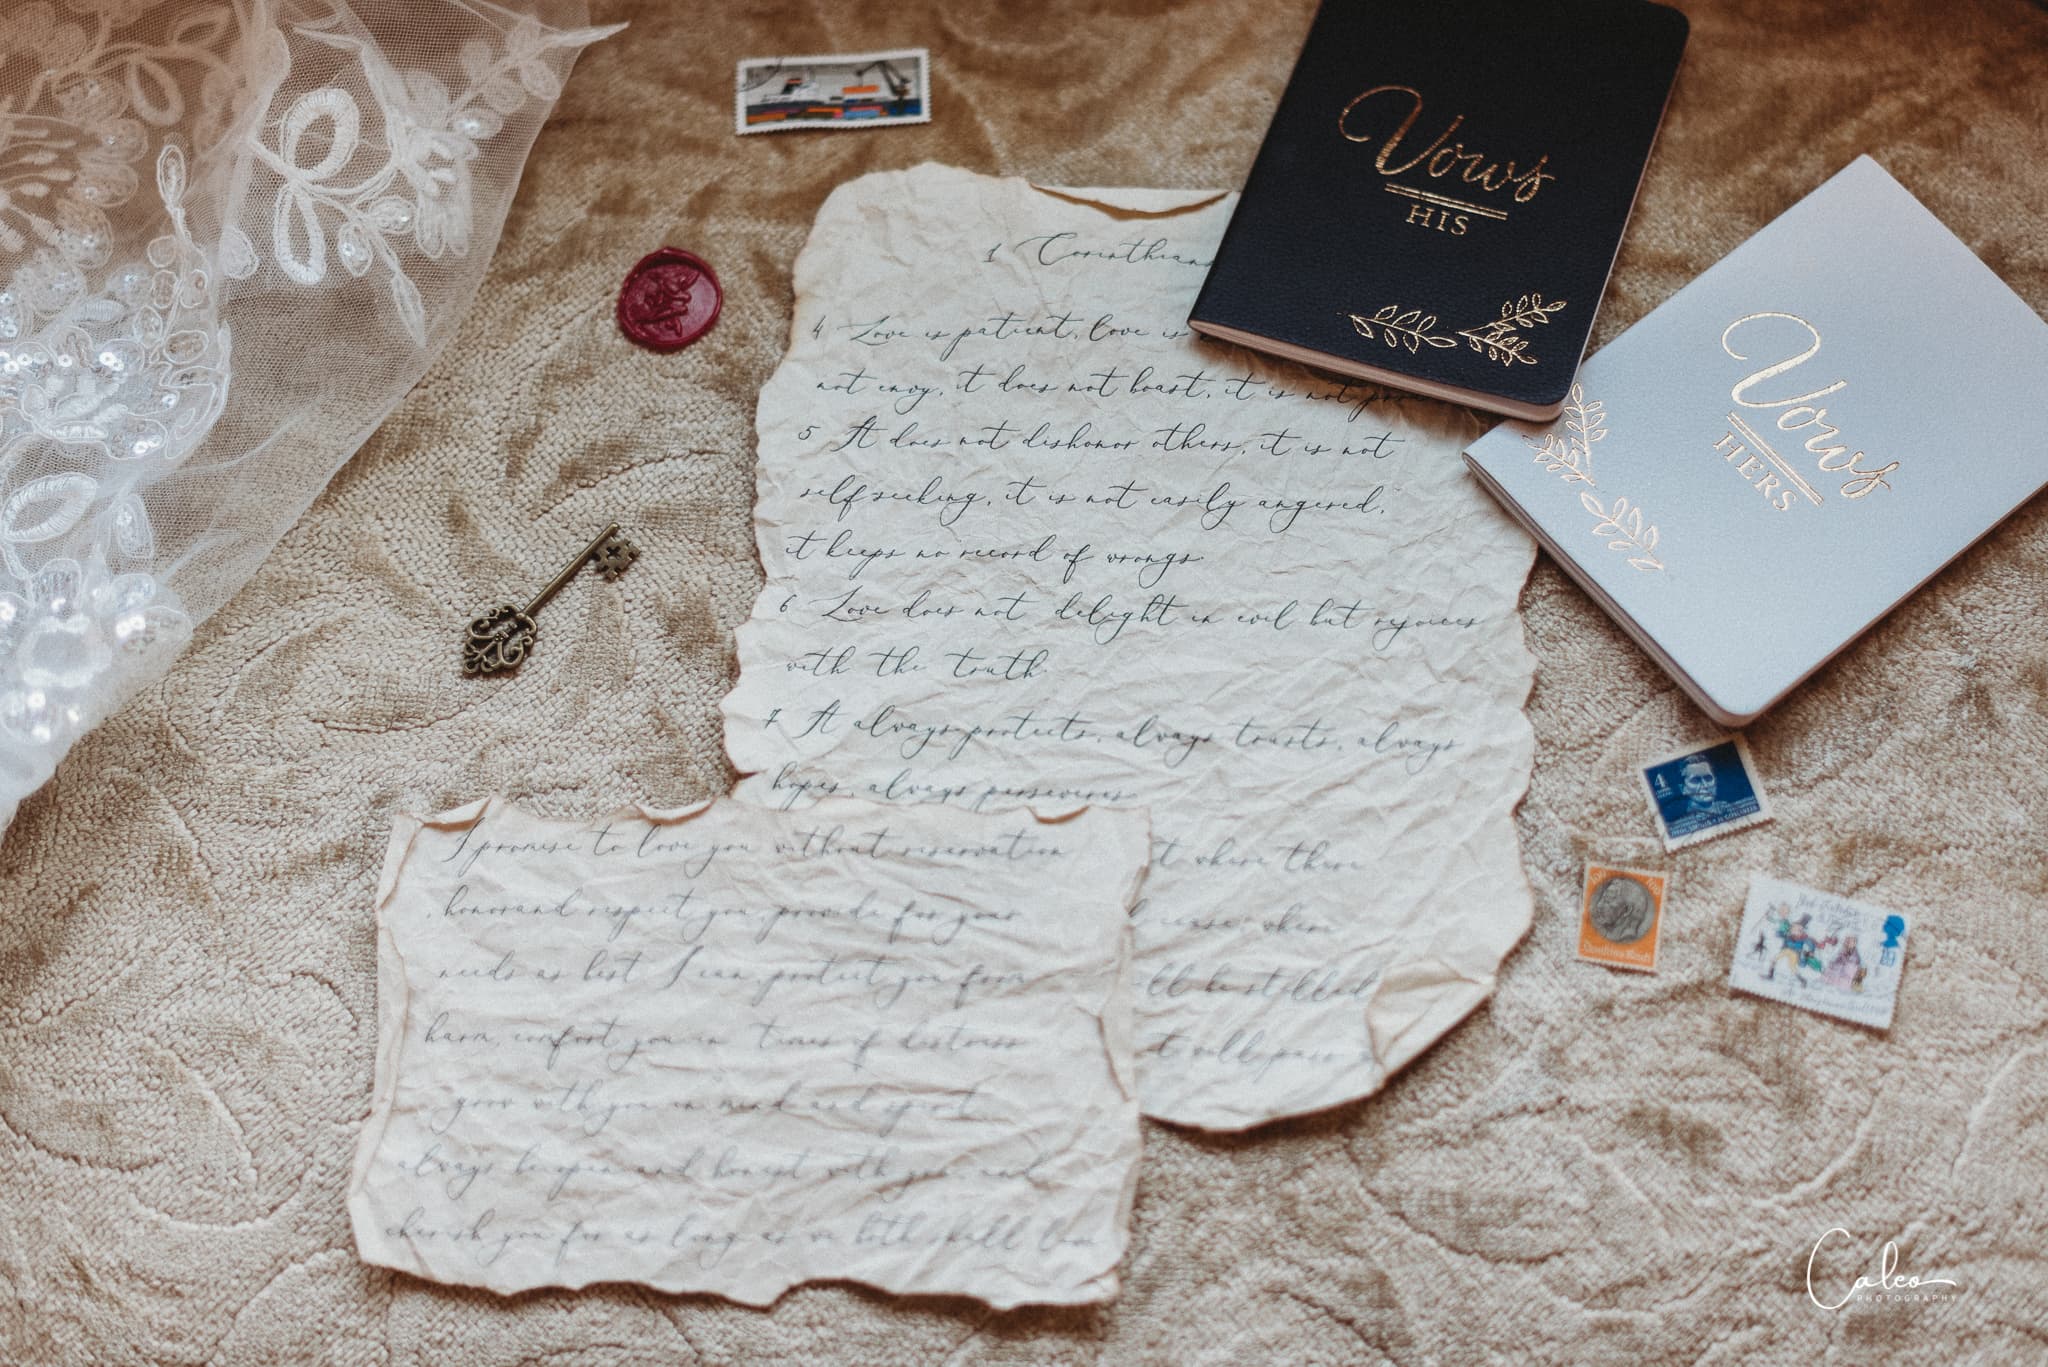 Vows
HIS
Vows
HERS
1 Corinthians
4 Love is patient, love is
not envy, it does not boast, it is not
5 It does not dishonor others, it is not
self seeking, it is not easily angered,
it keeps no record of wrongs.
6 Love does not delight in evil but rejoices
with the truth.
7 It always protects, always trusts, always
hopes, always perseveres.
t where there
cease; where
ll be stilled
t will pass
I promise to love you without reservation
, honor and respect you, provide for your
needs as best I can, protect you from
harm, comfort you in times of distress
grow with you in mind and spirit
always be open and honest with you, and
cherish you for as long as we both shall live
4
19
Caleo
PHOTOGRAPHY